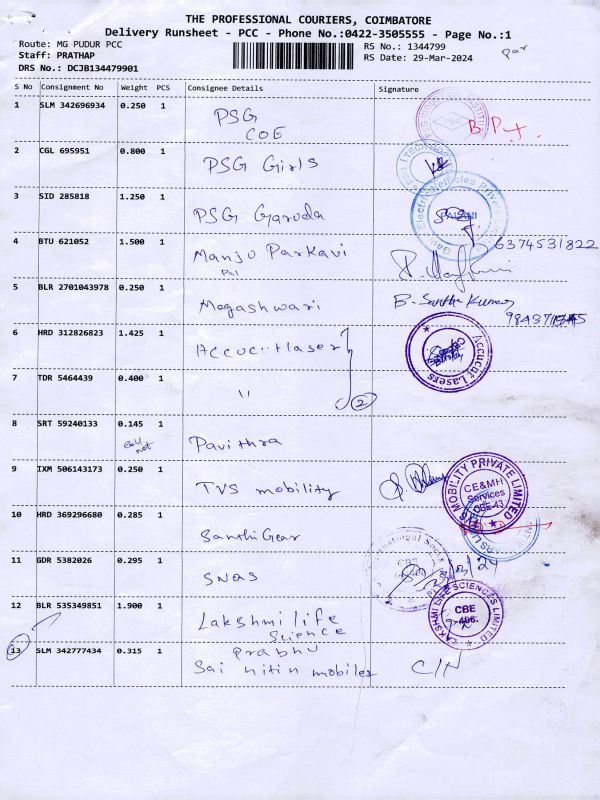 THE PROFESSIONAL COURIERS, COIMBATORE
Delivery Runsheet - PCC - Phone No.:0422-3505555 - Page No.:1
Route: MG PUDUR PCC RS No.: 1344799
Staff: PRATHAP RS Date: 29-Mar-2024
DRS No.: DCJB134479901
S No Consignment No Weight PCS Consignee Details Signature
1 SLM 342696934 0.250 1 PSG
COE
2 CGL 695951 0.800 1 PSG Girls
3 SID 285818 1.250 1 PSG Garuda
4 BTU 621052 1.500 1 Manju Parkavi 6374531822
Pal
5 BLR 2701043978 0.250 1 Megashwari B. Santha Kumar
6 HRD 312826823 1.425 1 Accucut laser Accucut Lasers
7 TDR 5464439 0.400 1 " 2
8 SRT 59240133 0.145 1 Pavithra
not
9 IXM 506143173 0.250 1 TVS mobility MOBILITY PRIVATE LIMITED
CE&MH
Services
CBE-43
10 HRD 369296680 0.285 1 Santhi Gear
11 GDR 5382026 0.295 1 SNAS
12 BLR 535349851 1.900 1 Lakshmi life
Science
LAKSHMI LIFE SCIENCES LIMITED
CBE
13 SLM 342777434 0.315 1 Prabhu
Sai nitin mobiles